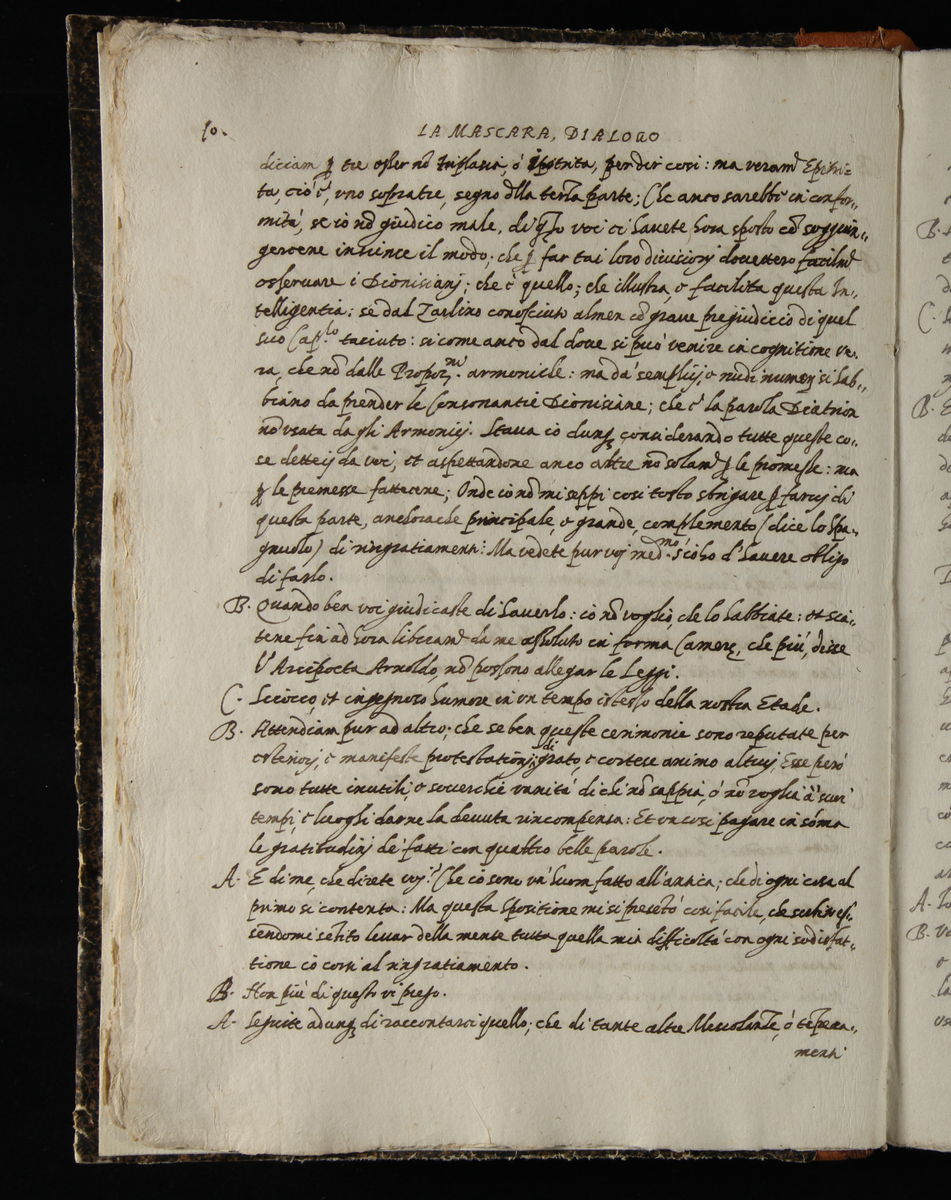 10.
LA MASCARA, DIALOGO
diciam ꝑ tre osser nō Triplasia, ó per dir cosi: ma veramᵉ Epitri-
ta, ció é, uno sopratre, segno della terza parte; Che anco sarebbe in confor-
mitá, se io nō giudico male, di qsto voi ci havete, hora sposto cō soggiun-
gercene insuince il modo; che ꝑ far tai loro divisionj dovettero facilmᵉ
osservare i Dionisianj; che é quello; che illustra, e facilita questa In-
telligentia: se dal Zarlino conosciuto almen cō grave pregiudicio di quel
suo Cap.ˡᵒ taciuto: si come anco dal dove si puó venire in cognitione ve-
ra, che nō dalle Proporz.ⁿⁱ armoniche: ma da semplicj, e nudi numerj si hab-
biano da prender le Consonantie Dionisiane; che é la parola Diatrion
nō usata da gli Armonicj. Stava io dunq considerando tutte queste co-
se detteci da voi, et aspettandone anco altre nō solamᵉ ꝑ le promesse: ma
ꝑ le premesse fattecene; Onde io nō mi seppi cosi tosto sbrigare ꝑ farvj di
questa parte, anchorache principale, e grande, complemento (dice lo Spa-
gnuolo) di ringratiamenti: Ma vedete pur voj med.ᵐᵒ s'io ho d'havere obligo
di farlo.
B. Quando ben voi giudicaste di haverlo: io nō voglio, che lo habbiate: et sia-
tene fin ad hora liberamᵉ da me assoluto in forma Camerę, che piú, disse
l'Arcipoeta Arnoldo, nō possono allegar le Leggi.
C. Sciocco, et ingegnoso humore in un tempo istesso della nostra Etade.
B. Attendiam pur ad altro; che se ben queste cerimonie sono reputate per
esteriorj, e manifeste protestationj di grato, e cortese animo altruj, Esse peró
sono tutte inutili, e soverchie vanitá di chi nō sappia, ó nō voglia á suoi
tempi, e luoghi darne la devuta rincompensa: Et un cosi pagare in sōma
le gratitudinj de' fatti con quattro belle parole.
A. E di me, che direte voj? Che io sono un' huom fatto all'antica; che di ogni cosa al
primo si contenta: Ma questa spositione mi si presētó cosi facile, che es-
sendomi sētito levar della mente tutta quella mia difficoltá con ogni sodisfat-
tione io corsi al ringratiamento.
B. Non piú di questo vi prego.
A. Seguite adunq di raccontarci quello; che di tante altre Mescolanze, ó tēpera-
menti